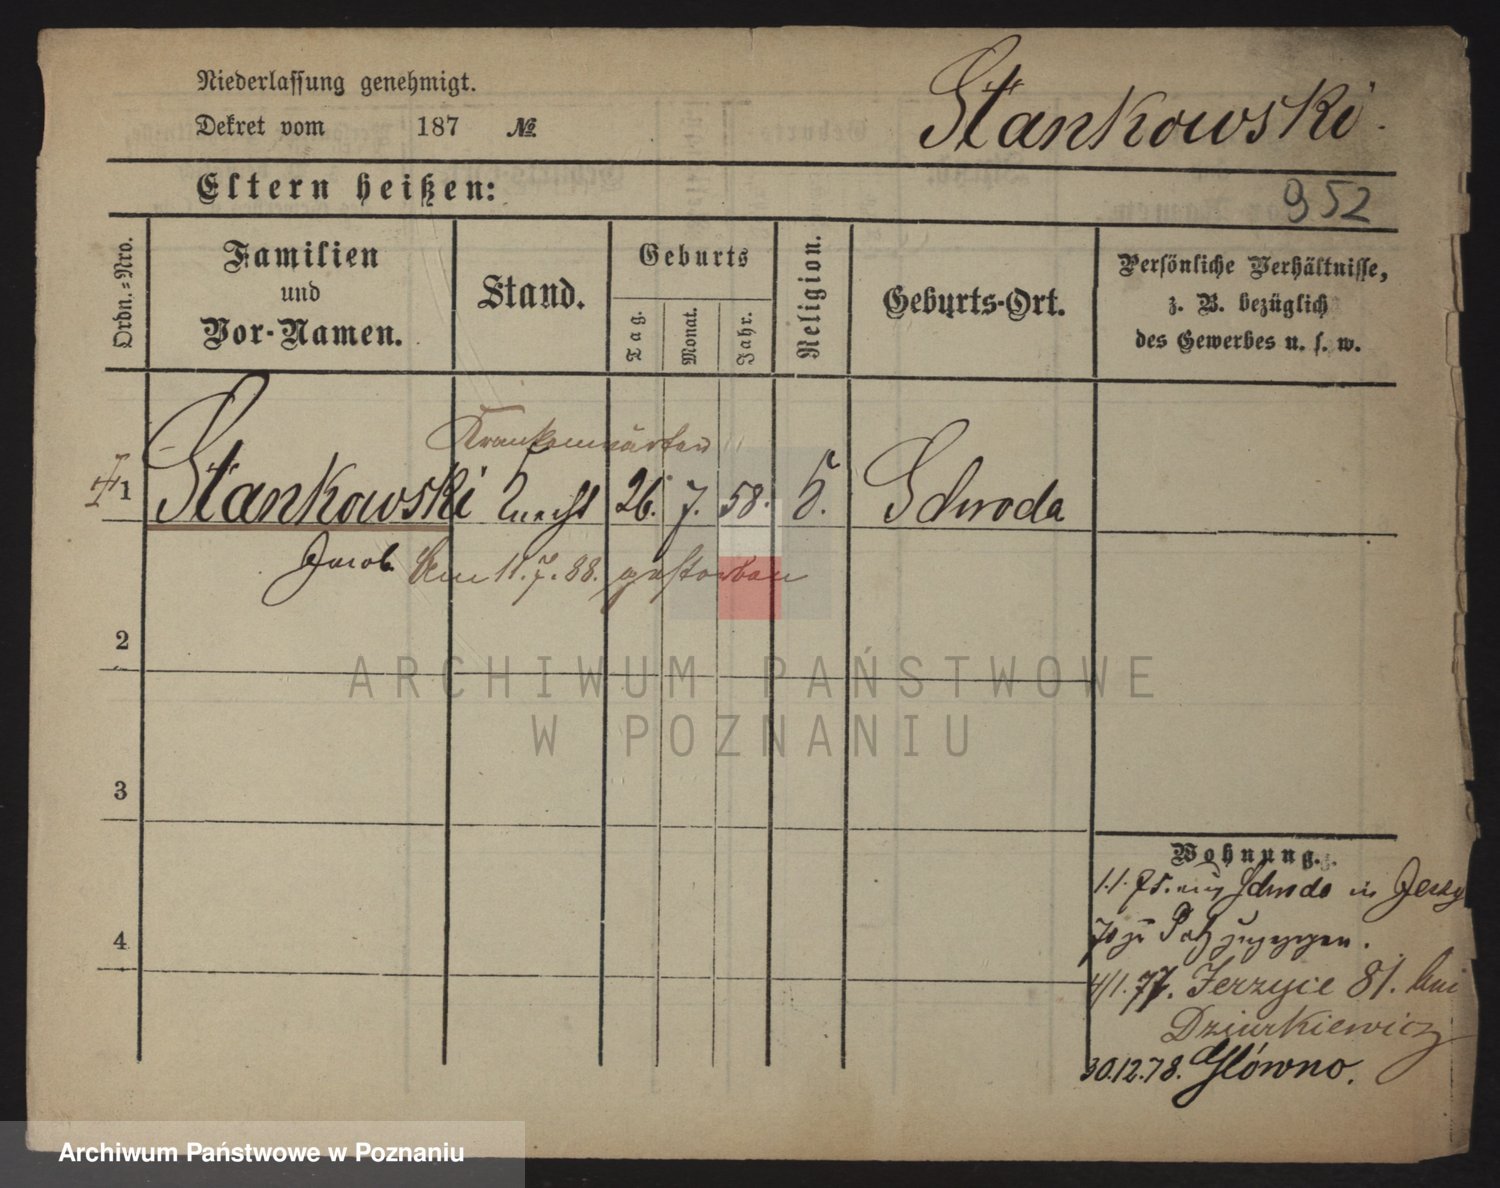 Niederlassung genehmigt.
Dekret vom 187 №
Stankowski
Eltern heißen:
952
Ordn.-Nro.
Familien
und
Vor-Namen.
Stand.
Geburts
Tag.
Monat.
Jahr.
Religion.
Geburts-Ort.
Persönliche Verhältnisse,
z. B. bezüglich
des Gewerbes u. s. w.
Krankenwärter
1 Stankowski Knecht 26. 7. 58. Schroda
Jacob. Am 11.7.88. gestorben
2
ARCHIWUM PAŃSTWOWE
W POZNANIU
3
4
Wohnung.
1.1.75. aus Schroda in Jerzy
zugezogen.
4/1.77. Jerzyce 81. bei
Dziurkiewicz
30.12.78. Główno.
Archiwum Państwowe w Poznaniu